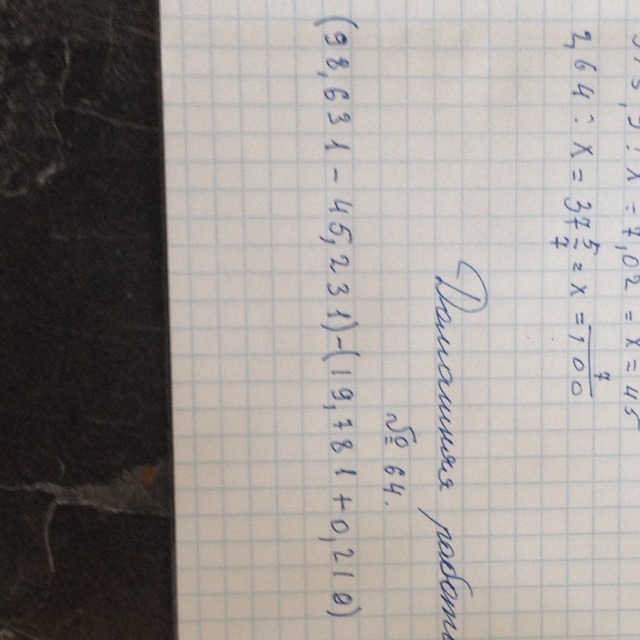 : x = 7,02 = x = 45
2,64 : x = 37 5/7 = x = 7/100
Домашняя работа
№ 64.
(98,631 - 45,231) - (19,781 + 0,219)